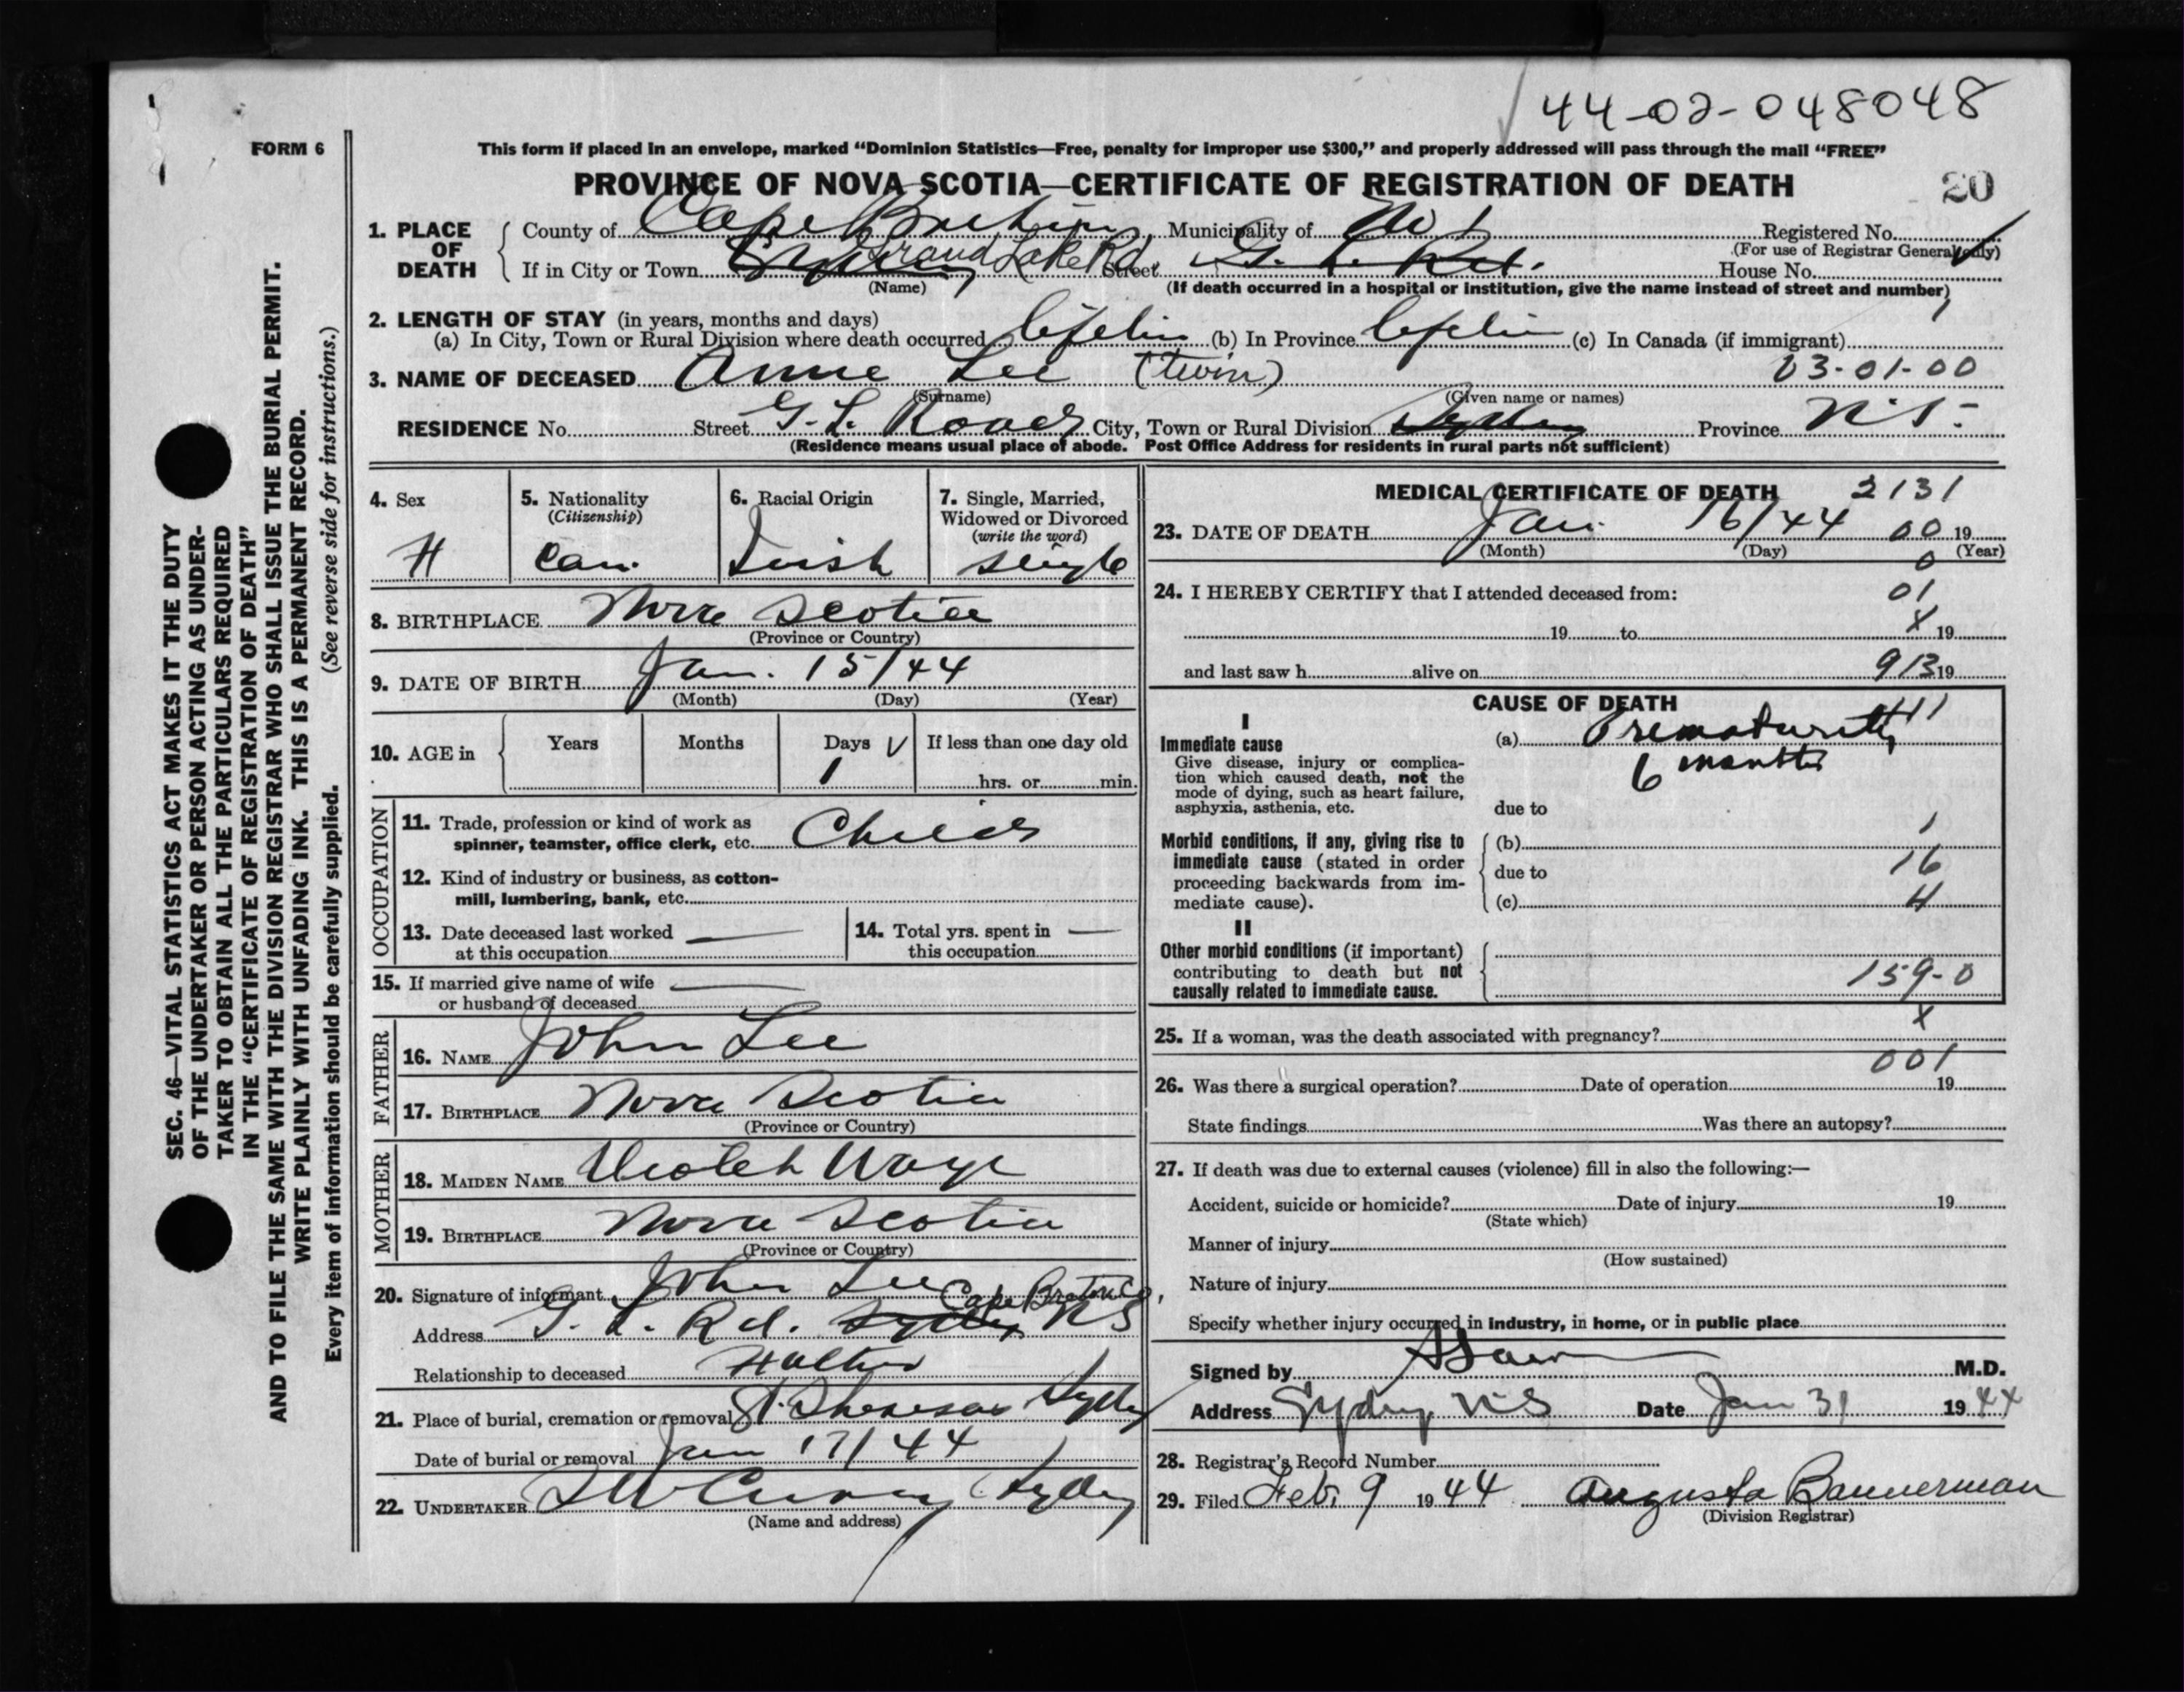 44-02-048048
FORM 6
This form if placed in an envelope, marked "Dominion Statistics—Free, penalty for improper use $300," and properly addressed will pass through the mail "FREE"
PROVINCE OF NOVA SCOTIA—CERTIFICATE OF REGISTRATION OF DEATH
20
1. PLACE OF DEATH
County of Cape Breton Municipality of Registered No.
(For use of Registrar General only)
If in City or Town Sydney Grand Lake Rd. Street G. L. Rd. House No.
(Name) (If death occurred in a hospital or institution, give the name instead of street and number)
2. LENGTH OF STAY (in years, months and days)
(a) In City, Town or Rural Division where death occurred (b) In Province (c) In Canada (if immigrant)
3. NAME OF DECEASED Anne Lee (twin) 03-01-00
(Surname) (Given name or names)
RESIDENCE No. Street G. L. Road City, Town or Rural Division Sydney Province N.S.
(Residence means usual place of abode. Post Office Address for residents in rural parts not sufficient)
4. Sex
5. Nationality
(Citizenship)
Can.
6. Racial Origin
Irish
7. Single, Married,
Widowed or Divorced
(write the word)
single
8. BIRTHPLACE Nova Scotia
(Province or Country)
9. DATE OF BIRTH Jan. 15/44
(Month) (Day) (Year)
10. AGE in Years Months Days If less than one day old
1 hrs. or min.
OCCUPATION
11. Trade, profession or kind of work as
spinner, teamster, office clerk, etc. Child
12. Kind of industry or business, as cotton-
mill, lumbering, bank, etc.
13. Date deceased last worked —
at this occupation
14. Total yrs. spent in —
this occupation
15. If married give name of wife —
or husband of deceased
FATHER
16. NAME John Lee
17. BIRTHPLACE Nova Scotia
(Province or Country)
MOTHER
18. MAIDEN NAME
19. BIRTHPLACE Nova Scotia
(Province or Country)
20. Signature of informant John Lee
Cape Breton Co,
Address G. L. Rd. Sydney NS
Relationship to deceased
21. Place of burial, cremation or removal St. Theresas Sydney
Date of burial or removal Jan 17/44
22. UNDERTAKER Sydney
(Name and address)
MEDICAL CERTIFICATE OF DEATH 2131
23. DATE OF DEATH Jan. 16/44 00 19
(Month) (Day) (Year)
0
24. I HEREBY CERTIFY that I attended deceased from: 01
19 to X 19
and last saw h alive on 913 19
CAUSE OF DEATH
I
Immediate cause
Give disease, injury or complica-
tion which caused death, not the
mode of dying, such as heart failure,
asphyxia, asthenia, etc.
(a) Prematurity
6 months
due to
Morbid conditions, if any, giving rise to
immediate cause (stated in order
proceeding backwards from im-
mediate cause).
(b) 1
due to 16
(c) 4
II
Other morbid conditions (if important)
contributing to death but not
causally related to immediate cause.
159-0
25. If a woman, was the death associated with pregnancy? X
001
26. Was there a surgical operation? Date of operation 19
State findings Was there an autopsy?
27. If death was due to external causes (violence) fill in also the following:—
Accident, suicide or homicide? Date of injury 19
(State which)
Manner of injury
(How sustained)
Nature of injury
Specify whether injury occurred in industry, in home, or in public place
Signed by M.D.
Address Sydney, NS Date Jan 31 1944
28. Registrar's Record Number
29. Filed Feb. 9 1944 Augusta Bannerman
(Division Registrar)
SEC. 46—VITAL STATISTICS ACT MAKES IT THE DUTY
OF THE UNDERTAKER OR PERSON ACTING AS UNDER-
TAKER TO OBTAIN ALL THE PARTICULARS REQUIRED
IN THE "CERTIFICATE OF REGISTRATION OF DEATH"
AND TO FILE THE SAME WITH THE DIVISION REGISTRAR WHO SHALL ISSUE THE BURIAL PERMIT.
WRITE PLAINLY WITH UNFADING INK. THIS IS A PERMANENT RECORD.
Every item of information should be carefully supplied. (See reverse side for instructions.)